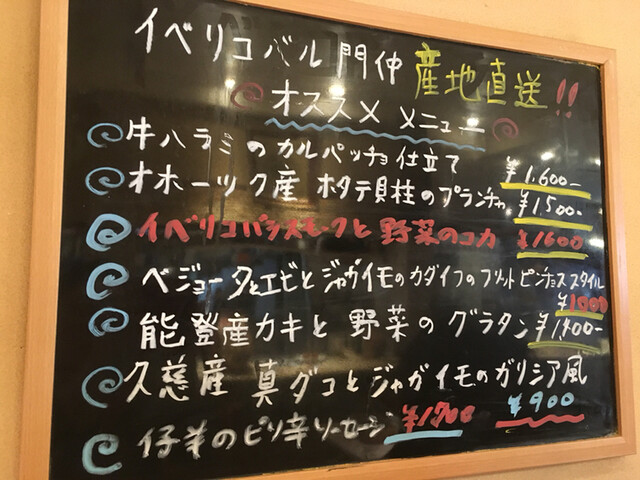 イベリコバル門仲 産地直送!!
オススメメニュー
牛ハラミのカルパッチョ仕立て ¥1,600-
オホーツク産 ホタテ貝柱のプランチャ ¥1,500-
イベリコバシスモークと野菜のコカ ¥1600
ベジョータとエビとジャガイモのカダイフのフリット ピンチョススタイル
¥1000
能登産カキと野菜のグラタン ¥1400-
久慈産 真ダコとジャガイモのガリシア風
¥900
仔羊のピリ辛ソーセージ ¥1200